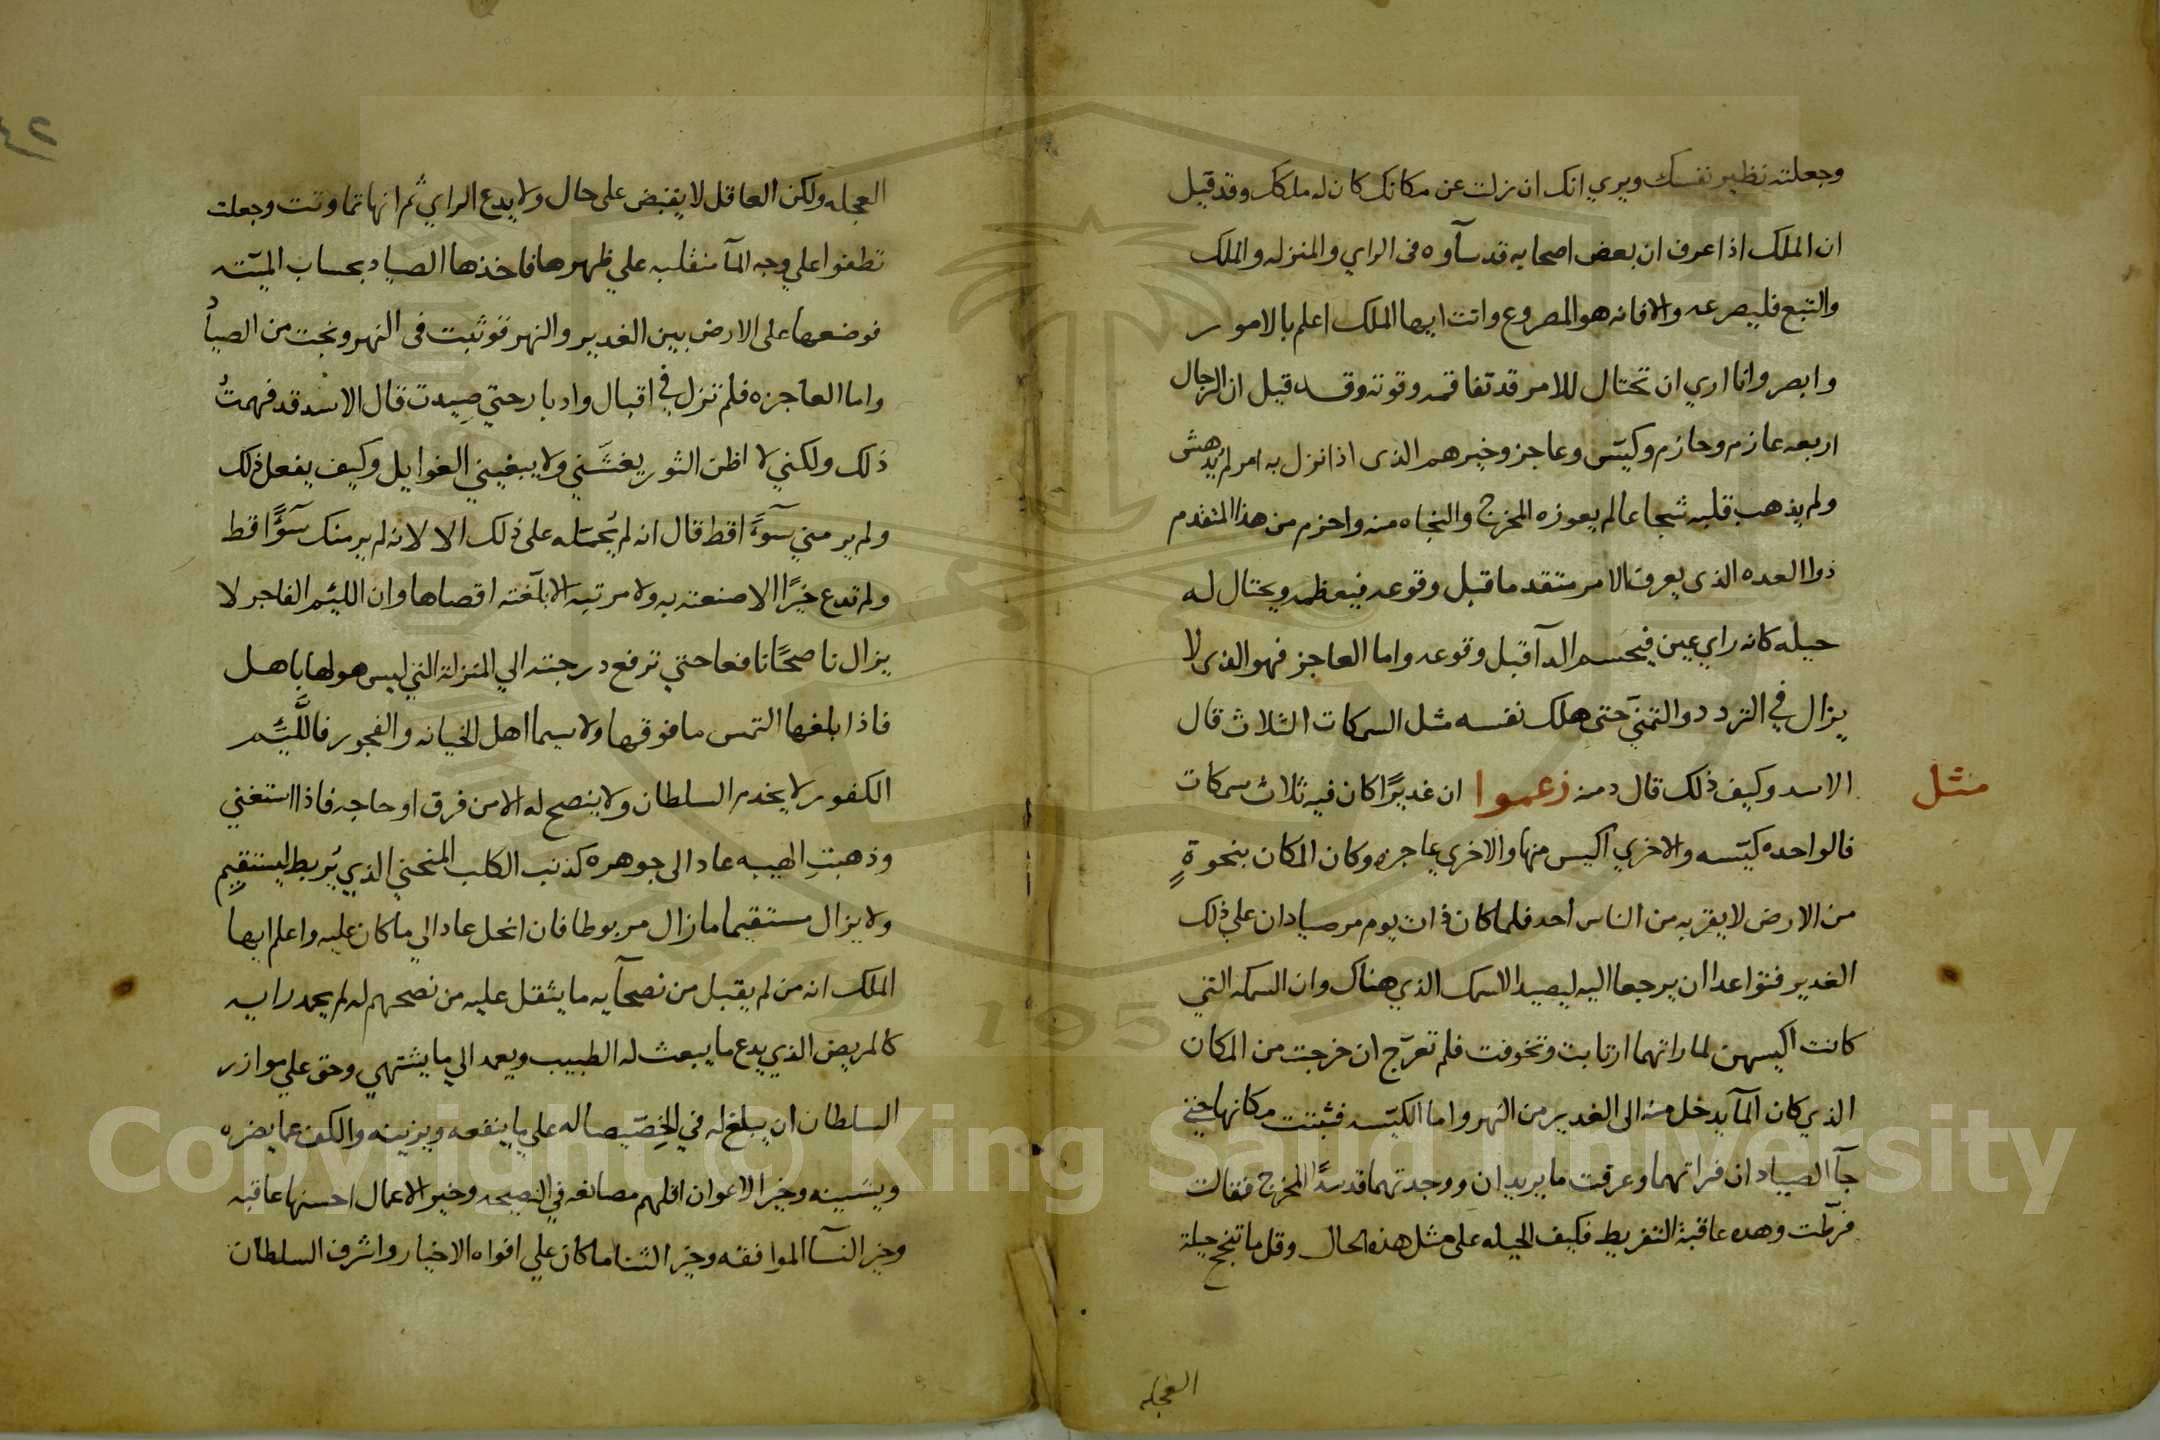 وجعلته نظير نفسك ويري انك ان نزلت عن مكانك كان له ملكك وقد قيل
ان الملك اذا عرف ان بعض اصحابه قد سآوه فى الراي والمنزله والملك
والتبع فليصرعه والا فانه هو المصروع وانت ايها الملك اعلم بالامور
وابصر وانا اري ان تحتال للامر قد تفاقمه وقوته وقد قيل ان الرجال
اربعه عازم وحازم وكيّس وعاجز وخيرهم الذى اذا نزل به امر لم يدهش
ولم يذهب قلبه شجاعا لم يعوزه المخرج والنجاه منه واحزم من هذا المتقدم
ذوا العده الذى يعرف الامر متقدما قبل وقوعه فيعظمه ويحتال له
حيله كانه راي عين فيحسم الدآ قبل وقوعه واما العاجز فهو الذى لا
يزال في التردد والتمنّي حتى هلك نفسه مثل السمكات الثلاث قال
الاسد وكيف ذلك قال دمنه زعموا ان غديرًا كان فيه ثلاث سمكات
مثل
فالواحده كيّسه والاخري اكيس منها والاخري عاجزه وكان المكان بنحوةٍ
من الارض لا يقربه من الناس احد فلما كان ذات يوم مر صيادان علي ذلك
الغدير فتواعدا ان يرجعا اليه ليصيدا السمك الذي هناك وان السمكه التي
كانت اكيسهن لما راتهما ارتابت وتخوفت فلم تعرّج ان خرجت من المكان
الذي كان المآ يدخل منه الى الغدير من النهر واما الكيّسه فثبتت مكانها حتي
جآ الصيادان فراتهما وعرفت ما يريدان ووجدتهما قد سدّا المخرج فقالت
فرّطت وهده عاقبة التفريط فكيف الحيله على مثل هذه الحال وقل ما تنجح حيلة
العجله
العجله ولكن العاقل لا يقبض على حال ولا يدع الراي ثم انها تماوتت وجعلت
تطفوا علي وجه المآ منقلبه علي ظهرها فاخذها الصياد بحساب الميّته
فوضعها على الارض بين الغدير والنهر فوثبت فى النهر ونجت من الصياد
واما العاجزه فلم تزل في اقبال وادبار حتي صِيدت قال الاسد قد فهمتُ
ذلك ولكني لا اظن الثور يغشّني ولا يبغيني الغوايل وكيف يفعل ذلك
ولم ير مني سَوءًا قط قال انه لم يُحمّله على ذلك الا لانه لم ير منك سَوءًا قط
ولم تدع خيرًا الا صنعته به ولا مرتبه الا بلّغته اقصاها وان اللئيم الفاجر لا
يزال ناصحًا نافعا حتي ترفع درجته الي المنزلة التي ليس هو لها باهل
فاذا بلغها التمس ما فوقها ولا سيما اهل الخيانه والفجور فاللّئيم
الكفور لا يخدم السلطان ولا ينصح له الا من فرق او حاجه فاذا استغني
وذهبتِ الهيبه عاد الى جوهره كذنب الكلب المنحني الذي يُربط ليستقيم
ولا يزال مستقيما ما زال مربوطا فان انحل عاد الي ما كان عليه واعلم ايها
الملك انه من لم يقبل من نصحآيه ما يثقل عليه من نصحهم له لم يحمد رايه
كالمريض الذي يدع ما يبعث له الطبيب ويعمد الي ما يشتهي وحق علي موازر
السلطان ان يبلغ له في الخِصّيصاله علي ما ينفعه ويزينه والكف عما يضره
ويشينه وخير الاعوان اقلهم مصانعه في النصيحه وخير الاعمال احسنها عاقبه
وخير النسآ الموافقه وخير الثنا ما كان علي افواه الاخيار واشرف السلطان
Copyright © King Saud University
1957